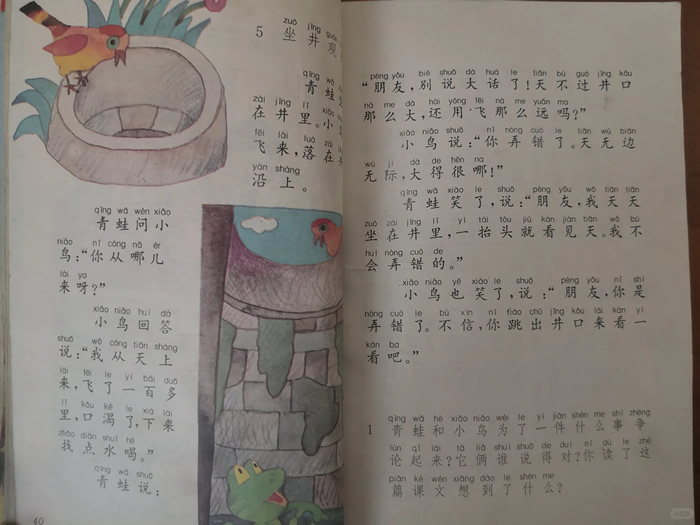 zuò jǐng guān
5 坐井观
qīng wā
青蛙
zài jǐng lǐ
在井里。小
fēi lái luò zài
飞来,落在井
yán shàng
沿上。
qīng wā wèn xiǎo
青蛙问小
niǎo nǐ cóng nǎ ér
鸟:“你从哪儿
lái ya
来呀?”
xiǎo niǎo huí dá
小鸟回答
shuō wǒ cóng tiān shàng
说:“我从天上
lái fēi le yì bǎi duō
来,飞了一百多
lǐ kǒu kě le xià lái
里,口渴了,下来
zhǎo diǎn shuǐ hē
找点水喝。”
qīng wā shuō
青蛙说:
40
péng yǒu bié shuō dà huà le tiān bú guò jǐng kǒu
“朋友,别说大话了!天不过井口
nà me dà hái yòng fēi nà me yuǎn ma
那么大,还用飞那么远吗?”
xiǎo niǎo shuō nǐ nòng cuò le tiān wú biān
小鸟说:“你弄错了。天无边
wú jì dà de hěn na
无际,大得很哪!”
qīng wā xiào le shuō péng yǒu wǒ tiān tiān
青蛙笑了,说:“朋友,我天天
zuò zài jǐng lǐ yì tái tóu jiù kàn jiàn tiān wǒ bú
坐在井里,一抬头就看见天。我不
huì nòng cuò de
会弄错的。”
xiǎo niǎo yě xiào le shuō péng yǒu nǐ shì
小鸟也笑了,说:“朋友,你是
nòng cuò le bú xìn nǐ tiào chū jǐng kǒu lái kàn yí
弄错了。不信,你跳出井口来看一
kàn ba
看吧。”
qīng wā hé xiǎo niǎo wèi le yí jiàn shén me shì zhēng
1 青蛙和小鸟为了一件什么事争
lùn qǐ lái tā liǎ shuí shuō de duì nǐ dú le zhè
论起来?它俩谁说得对?你读了这
piān kè wén xiǎng dào le shén me
篇课文想到了什么?